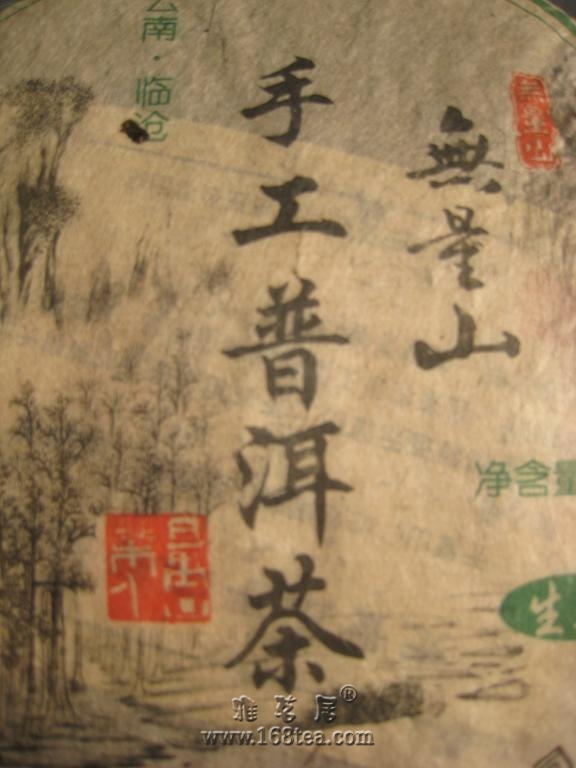 云南·临沧
無量山
手工普洱茶
净含量
生
雅茗居®
www.168tea.com